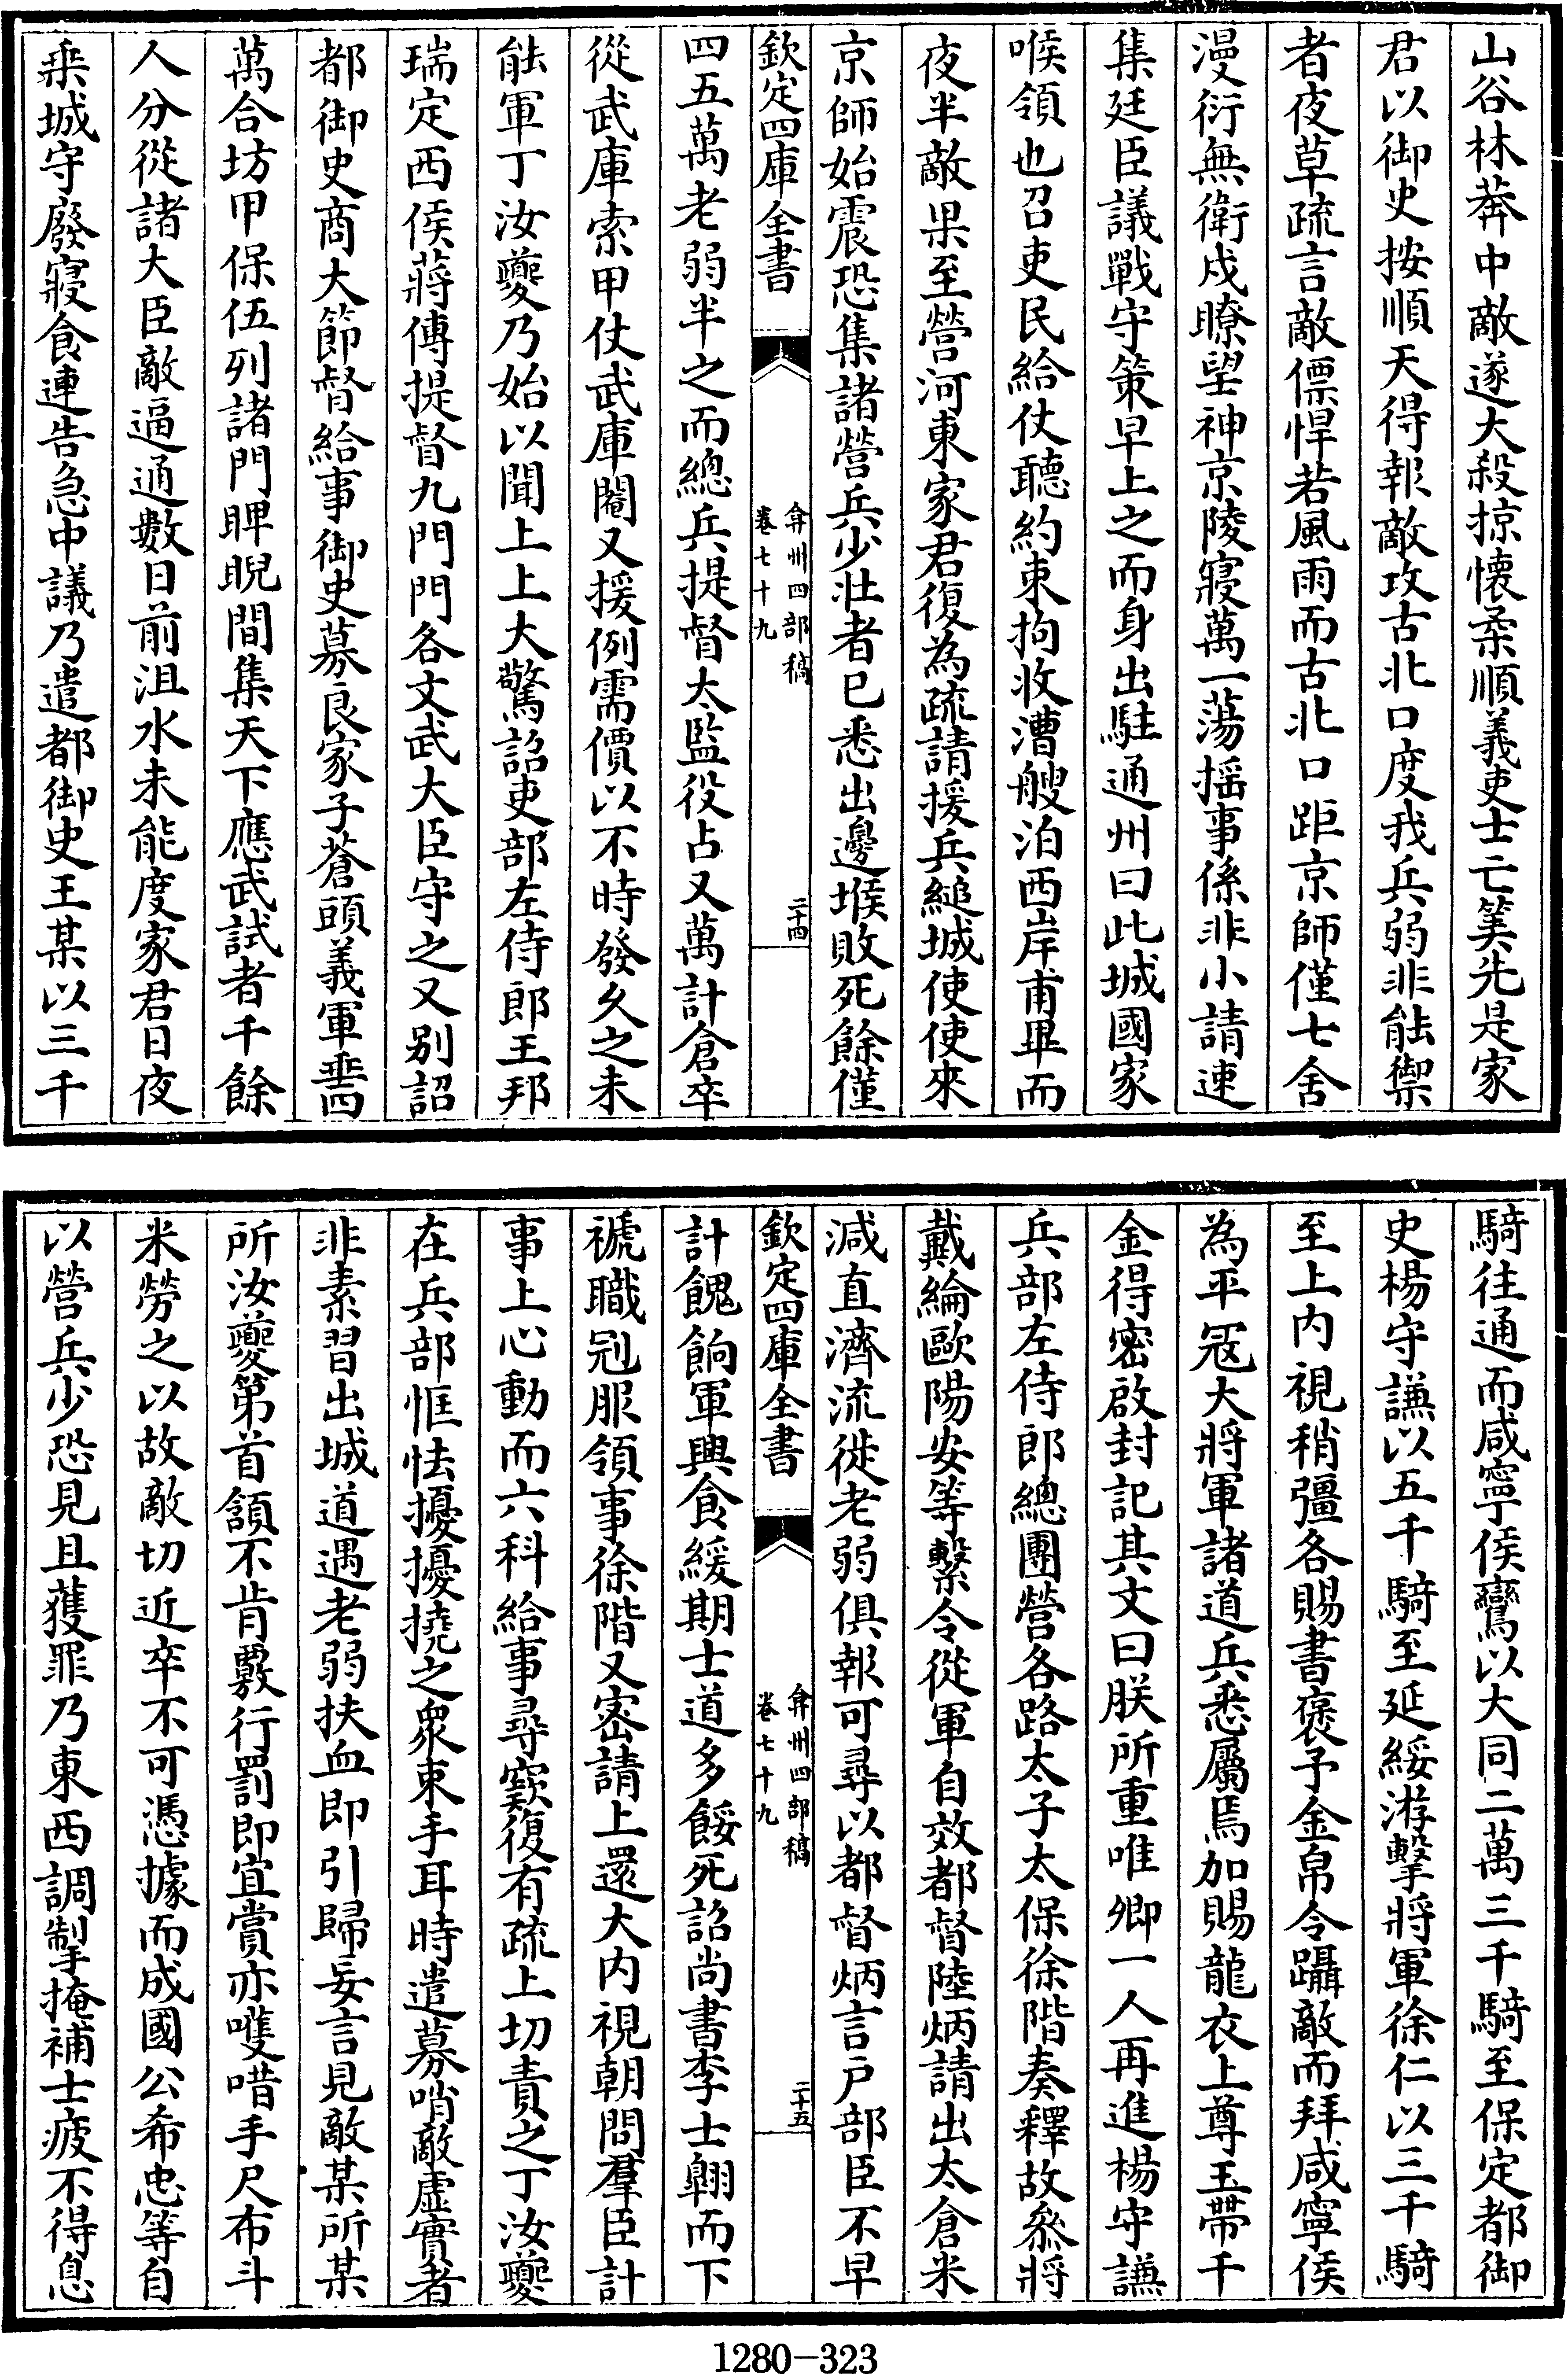 山谷林莽中敵遂大殺掠懐柔順義吏士亡筭先是家
君以御史按順天得報敵攻古北口度我兵弱非能禦
者夜草疏言敵僄悍若風雨而古北口距京師僅七舍
漫衍無衛戍瞭望神京陵寢萬一蕩揺事係非小請速
集廷臣議戰守策早上之而身出駐通州曰此城國家
喉領也召吏民給仗聽約束拘收漕艘泊西岸甫畢而
夜半敵果至營河東家君復為疏請援兵縋城使使來
京師始震恐集諸營兵少壯者已悉出邊堠敗死餘僅
欽定四庫全書
弇州四部稿
卷七十九
二十四
四五萬老弱半之而總兵提督太監役占又萬計倉卒
從武庫索甲仗武庫閹又援例需價以不時發久之未
能軍丁汝夔乃始以聞上上大驚詔吏部左侍郎王邦
瑞定西侯蔣傅提督九門門各文武大臣守之又别詔
都御史商大節督給事御史募良家子蒼頭義軍壘四
萬合坊甲保伍列諸門睥睨間集天下應武試者千餘
人分從諸大臣敵逼通數日前沮水未能度家君日夜
乗城守廢寢食連告急中議乃遣都御史王某以三千
騎往通而咸寧侯鸞以大同二萬三千騎至保定都御
史楊守謙以五千騎至延綏游擊將軍徐仁以三千騎
至上内視稍彊各賜書褒予金帛令躡敵而拜咸寧侯
為平冦大將軍諸道兵悉屬焉加賜龍衣上尊玉帶千
金得密啟封記其文曰朕所重唯卿一人再進楊守謙
兵部左侍郎總團營各路太子太保徐階奏釋故叅將
戴綸歐陽安等繫令從軍自效都督陸炳請出太倉米
減直濟流徙老弱俱報可尋以都督炳言戸部臣不早
欽定四庫全書
弇州四部稿
卷七十九
二十五
計餽餉軍興食緩期士道多餒死詔尚書李士翺而下
褫職冠服領事徐階又密請上還大内視朝問羣臣計
事上心動而六科給事尋窾復有疏上切責之丁汝夔
在兵部恇怯擾擾撓之衆束手耳時遣募哨敵虚實者
非素習出城道遇老弱扶血即引歸妄言見敵某所某
所汝夔第首頷不肯覈行罰即宜賞亦嚄唶手尺布斗
米勞之以故敵切近卒不可憑據而成國公希忠等自
以營兵少恐見且獲罪乃東西調掣掩補士疲不得息
1280-323